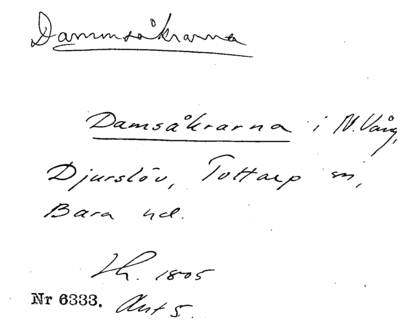 Dammsåkrarna
Damsåkrarna i N. Vång,
Djurslöv, Tottarp sn,
Bara hd.
Lh. 1805
Nr 6333. Akt 5.